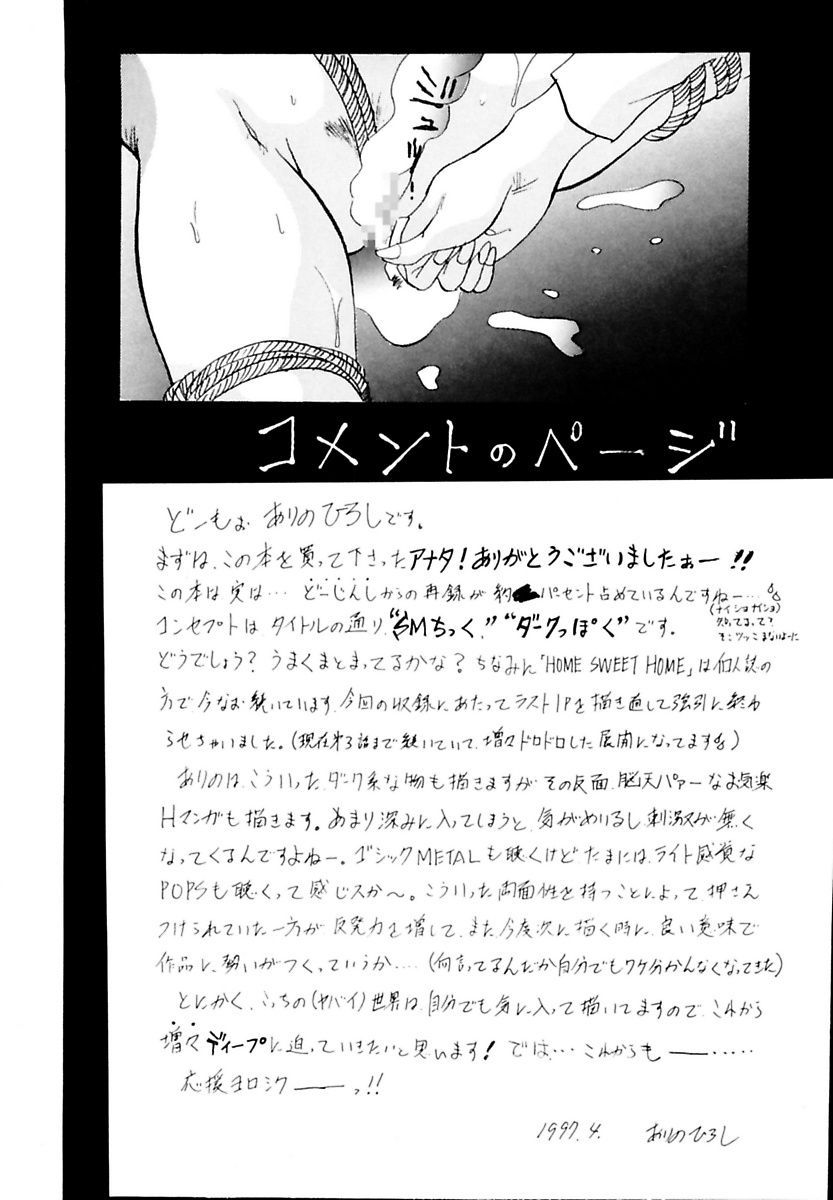 ブラシュー…
コメントのページ
どーもぉ ありのひろしです。
まずは、この本を買って下さったアナタ!ありがとうございましたぁー!!
この本は実は… どーじんしからの再録が約 パーセント占めているんですねー…
(ナイショナイショ)
知ってるって?
そこツッこまないよーに
コンセプトはタイトルの通り、“SMちっく”“ダークっぽく”です。
どうでしょう?うまくまとまってるかな?ちなみに「HOME SWEET HOME」は個人誌の
方で今なお続いています。今回の収録にあたってラスト1Pを描き直して強引に終わ
らせちゃいました。(現在第3話まで続いていて、増々ドロドロした展開になってます)
ありのは、こういったダーク系な物も描きますがその反面、脳天パァーなお気楽
Hマンガも描きます。あまり深みに入ってしまうと、気がめいるし刺激が無く
なってくるんですよねー。ゴシックMETALも聴くけどたまには、ライト感覚な
POPSも聴くって感じスか〜。こういった両面性を持つことによって押さえ
つけられていた一方が反発力を増して、また今度次に描く時に、良い意味で
作品に、勢いがつくっていうか‥‥(何言ってるんだか自分でもワケ分かんなくなってきた)
とにかく、こっちの(ヤバイ)世界は、自分でも気に入って描いてますので、これから
増々ディープに迫っていきたいと思います!では… これからも――‥‥‥
応援ヨロシク――っ!!
1997.4. ありのひろし